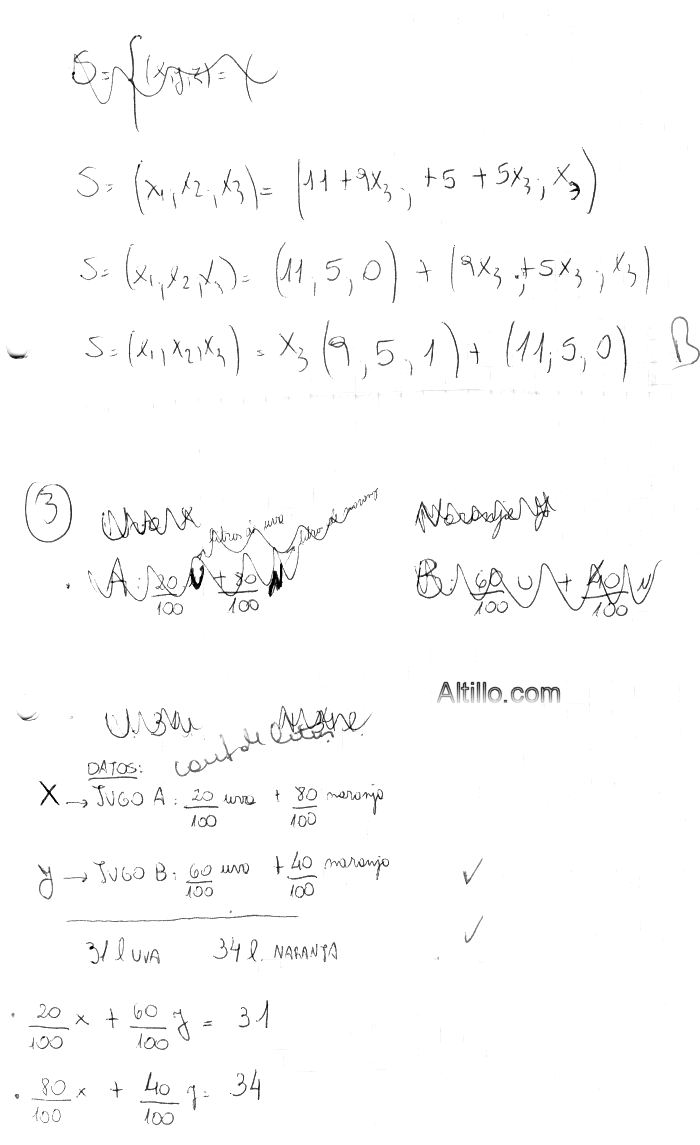 S = (x₁, x₂, x₃) = (11 + 9x₃ ; +5 + 5x₃ ; x₃)
S = (x₁, x₂, x₃) = (11, 5, 0) + (9x₃ ; +5x₃ ; x₃)
S = (x₁, x₂, x₃) = x₃ (9, 5, 1) + (11, 5, 0) B
3
litros de uva litros de naranja
A: 20/100 U + 80/100 N B: 60/100 U + 40/100 N
Altillo.com
cant de litros
DATOS:
X → JUGO A: 20/100 uva + 80/100 naranja
y → JUGO B: 60/100 uva + 40/100 naranja ✓
31 l UVA 34 l. NARANJA ✓
· 20/100 x + 60/100 y = 31
· 80/100 x + 40/100 y = 34